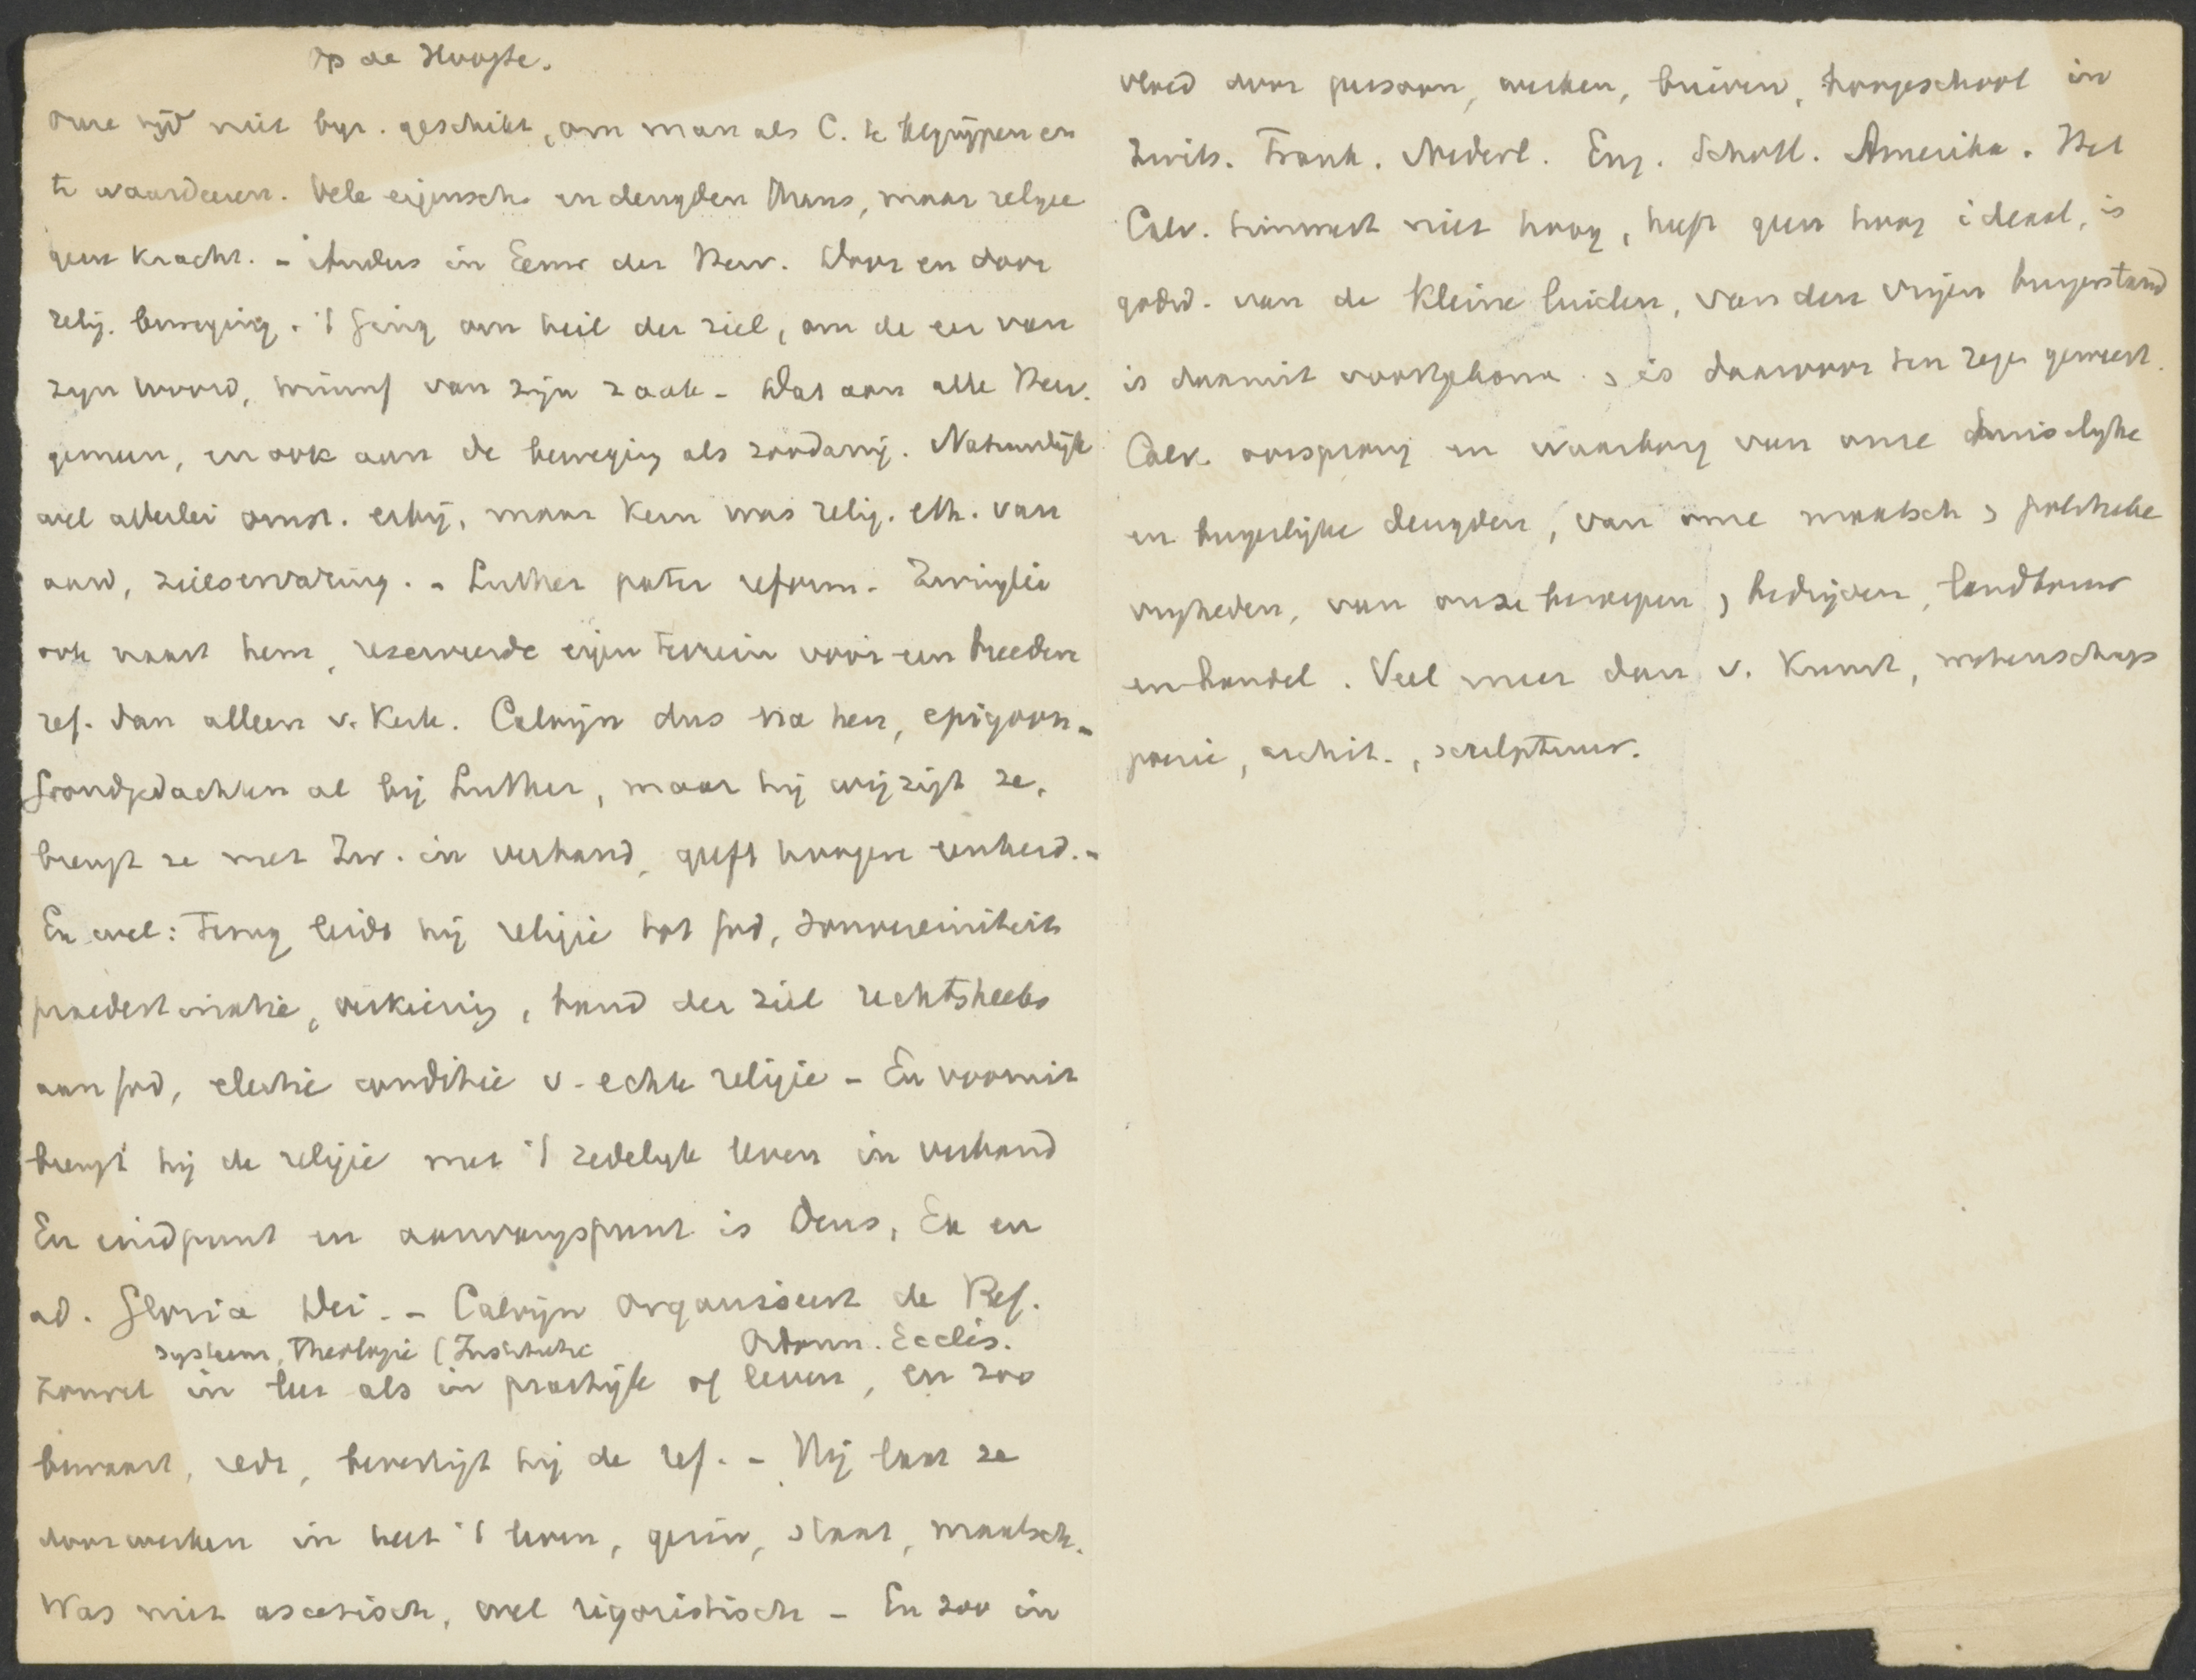 Op de Hoogte.
Onze tijd niet bijz. geschikt, om man als C. te begrijpen en
te waardeeren. Vele eigensch. en deugden thans, maar religie
geen kracht. - Anders in Eeuw der Herv. Door en door
relig. beweging. 't Ging om heil der ziel, om de eer van
zijn woord, triumf van zijn zaak - Dat aan alle Herv.
gemeen, en ook aan de beweging als zoodanig. Natuurlijk
wel allerlei omst. erbij, maar kern was relig. eth. van
aard, zielservaring. - Luther pater reform. Zwinglie
ook naast hem, reserveerde eigen terrein voor een breedere
ref. dan alleen v. Kerk. Calvijn dus na hen, epigoon -
Grondgedachten al bij Luther, maar hij wijzigt ze,
brengt ze met Zw. in verband, geeft hoogere eenheid. -
En wel: Terug leidt hij religie tot God, souvereiniteit
praedestinatie, verkiezing, band der ziel rechtstreeks
aan God, electie conditie v. echte religie - En vooruit
brengt hij de religie met 't zedelijk leven in verband
En eindpunt en aanvangspunt is Deus, Ex en
ad. Gloria Dei. - Calvijn organiseert de Ref.
systeem, Theologie (Institutie Ordonn. Eccles.
Zoowel in leer als in practijk of leven, en zoo
bewaart, redt, bevestigt hij de ref. - Hij laat ze
doorwerken in heel 't leven, gezin, staat, maatsch.
Was niet ascetisch, wel rigoristisch - En zoo in
vloed door persoon, werken, brieven, hoogeschool in
Zwits. Frank. Nederl. Eng. Schotl. Amerika. Het
Calv. timmert niet hoog, heeft geen hoog ideaal, is
godsd. van de kleine luiden, van den vrijen burgerstand
is daaruit voortgekomen & is daarvoor ten zegen geweest.
Calv. oorsprong en waarborg van onze huiselijke
en burgerlijke deugden, van onze maatsch & politieke
vrijheden, van onze beroepen, bedrijven, landbouw
en handel. Veel meer dan v. Kunst, wetenschap
poezie, archit., sculptuur.